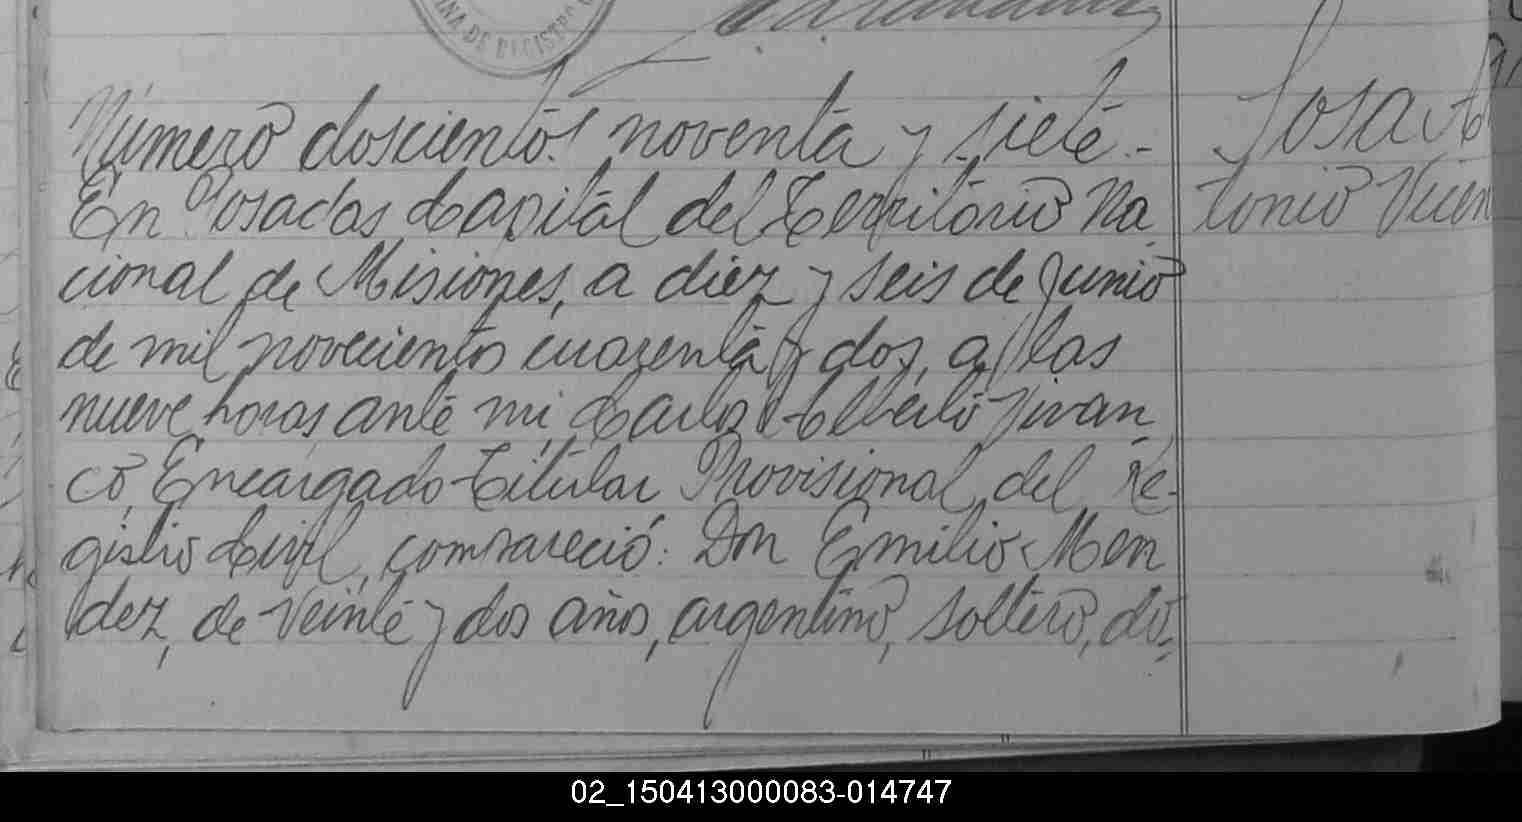 INA DE REGISTRO
Número doscientos noventa y siete.-
En Posadas Capital del Territorio Na-
cional de Misiones, a diez y seis de Junio
de mil novecientos cuarenta y dos, a las
nueve horas ante mi, Carlos Alberto Vivan-
co, Encargado Titular Provisional del Re-
gistro Civil, compareció: Don Emilio Men
dez, de veinte y dos años, argentino, soltero, do-
Sosa An
tonio Vicen
02_150413000083-014747